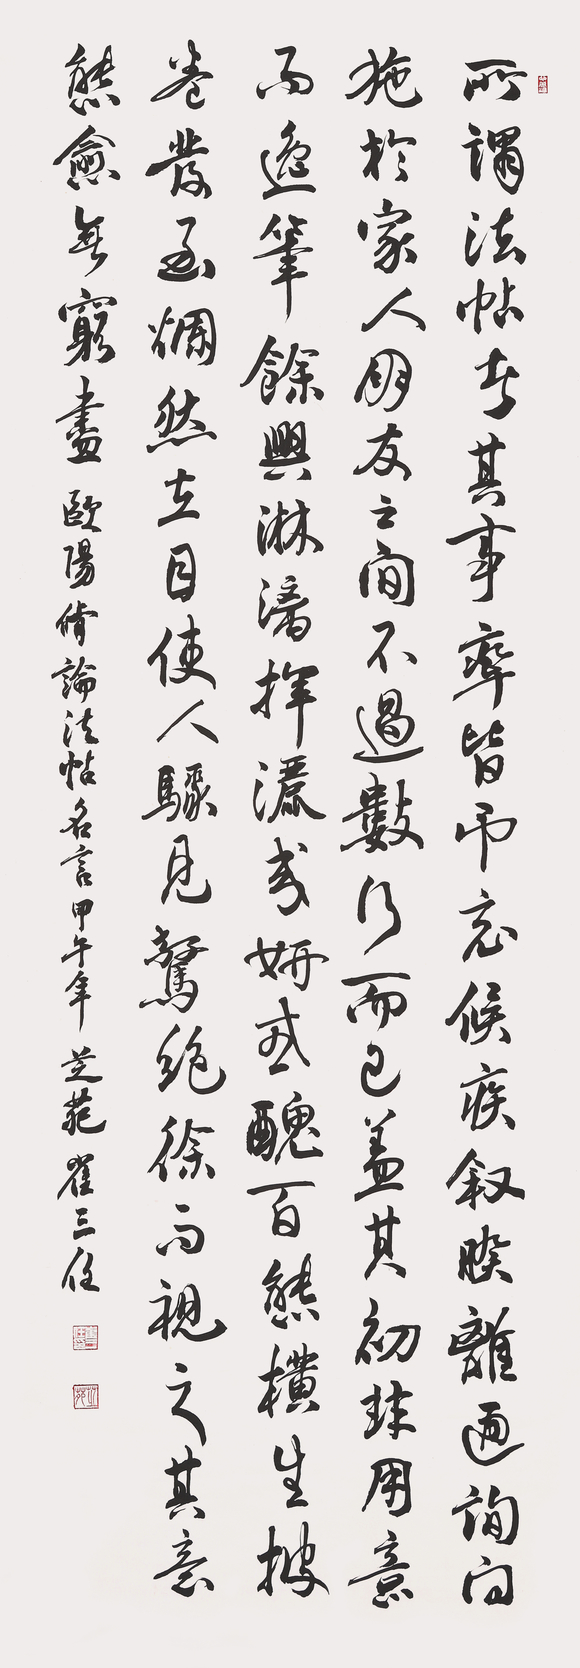 所謂法帖者其事率皆弔哀候疾叙睽離通訊問
施於家人朋友之間不過數行而已蓋其初非用意
而逸筆餘興淋漓揮灑或妍或醜百態橫生披
卷發函爛然在目使人驟見驚絶徐而視之其意
態愈無窮盡 歐陽脩論法帖名言甲午年 芝苑 崔三任